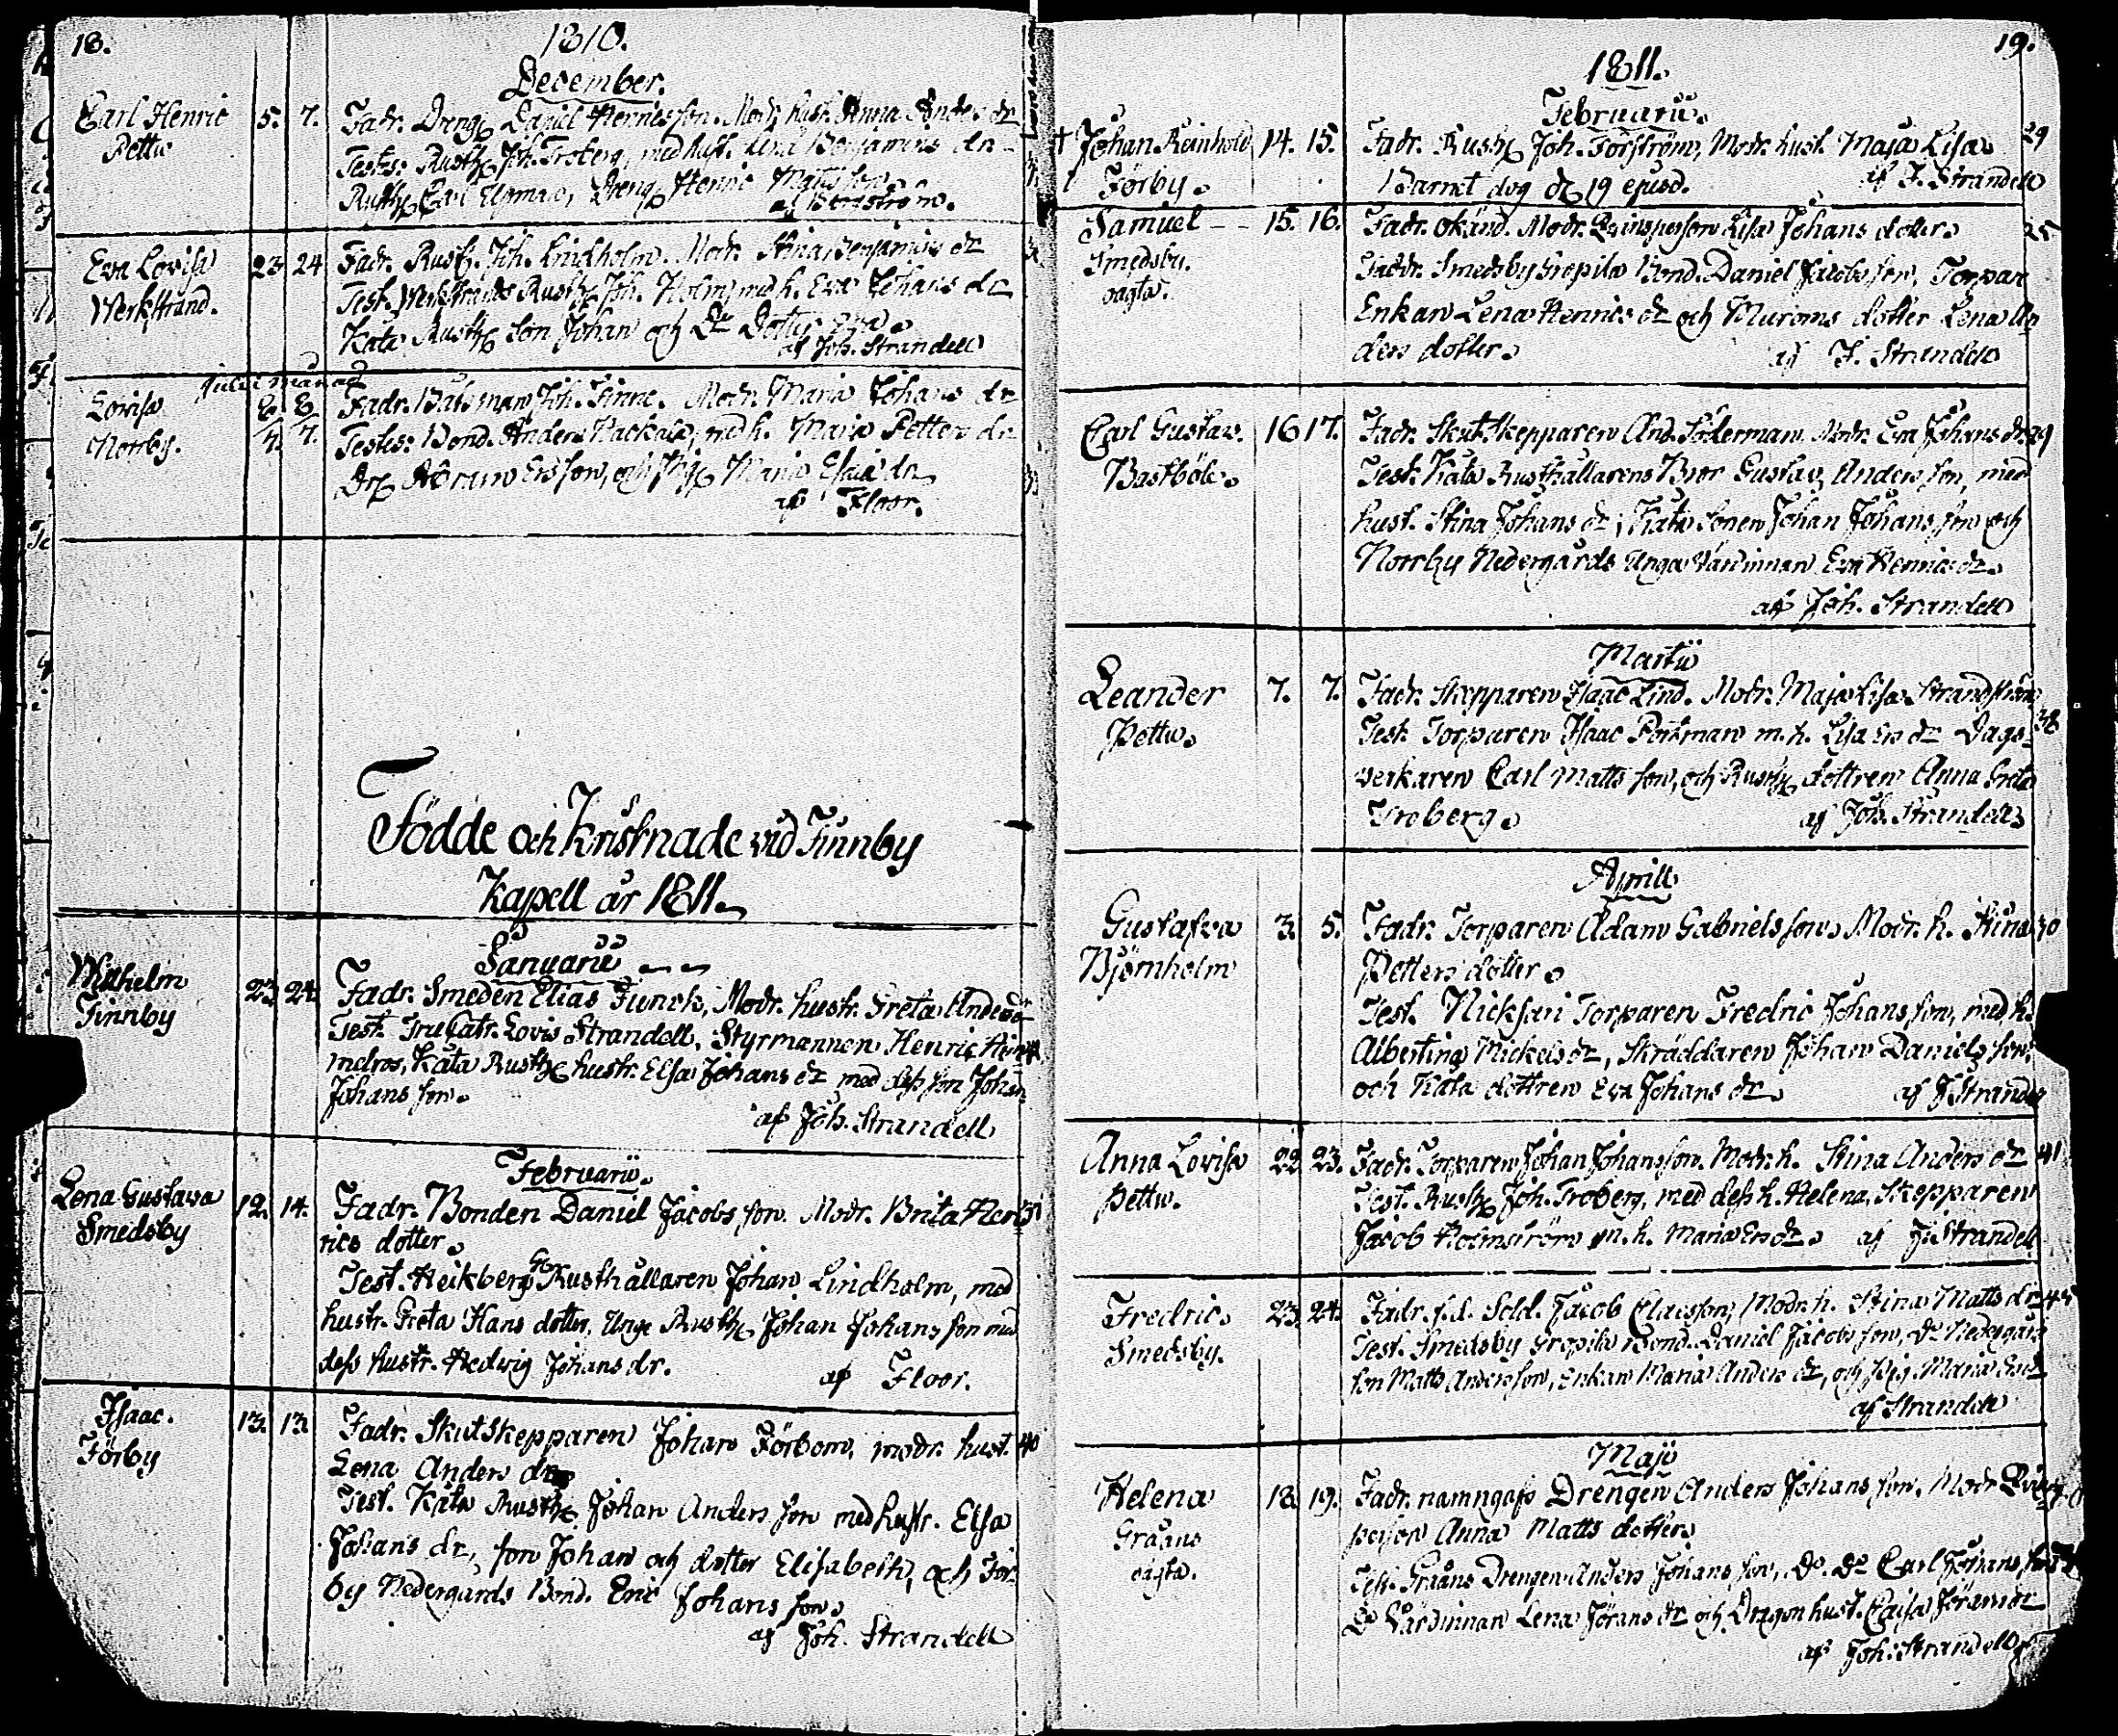 18.
1810.
December.
Carl Henric 5. 7. Fadr. Dreng Daniel Hennes son. Modr. hust. Anna Anders dr
Pettu Testes: Rusth. Joh. Froberg, med hust. Lena Benjamins dr
Rusth. Carl Ekman, Dreng Henric Matts son.
af Bergström.
Eva Lovisa 23 24 Fadr. Rusth. Joh. Lindholm. Modr. Stina Benjamins dr
Werkstrand. Test. Rusth. Joh. Holm, med h. Eva Johans dr
Kåta Rusth. son Johan och Do Dotter Eva
af Joh. Strandell
Julii månad
Lovisa 6. 8. Fadr. Båtsman Joh. Finne. Modr. Maria Johans dr
Norrby. 7. 7. Testes: Bond. Anders Packala, med h. Maria Petters dr
Dr. Abram Ersson, och Pig. Maria Esaia dr
af Floor.
Födde och Kristnade vid Finnby
Kapell år 1811.
Januarii
Wilhelm 23. 24. Fadr. Smeden Elias Funck, Modr. hustr. Greta Anders dr
Finnby Test. Fru Catr. Lovis. Strandell, Styrmannen Henric
melros, Kåta Rusth. hustr. Elsa Johans dr med dess son Johan
Johans son.
af Joh. Strandell
Februarii.
Lena Gustava 12. 14. Fadr. Bonden Daniel Jacobs son. Modr. Brita Hen
Smedsby rics dotter.
Test. Heikbergs Rusthållaren Johan Lindholm, med
hustr. Greta Hans dotter, Unge Rusth. Johan Johans son med
dess hustr. Hedvig Johans dr.
af Floor.
Isaac. 13. 13. Fadr. Skutskepparen Johan Förbom, modr. hust. 40
Förby Lena Anders dr
Test. Kåta Rusth. Johan Anders son med hustr. Elsa
Johans dr, son Johan och dotter Elisabeth, och För
by Nedergårds Bond. Eric Johans son.
af Joh. Strandell
19.
1811.
Februarii.
† Johan Reinhold 14. 15. Fadr. Rusth. Joh. Forström, Modr. hust. Maja Lisa 29
Förby. Barnet dog d. 19 ejusd. af J. Strandell
Samuel 15. 16. Fadr. okänd. Modr. Qvinspersson Lisa Johans dotter. 25
Smedsby. Faddr. Smedsby Grepila Bond. Daniel Jacobs son, Torpar
ägta. Enkan Lena Henrics dr och Muroms dotter Lena An
ders dotter.
af J. Strandell
Carl Gustav. 16 17. Fadr. Skutskepparen And. Söderman. Modr. Eva Johans dr. 29
Bastböle. Test. Kåta Rusthållarens Bror Gustav Anders son, med
hust. Stina Johans dr, Kåta Sonen Johan Johans son och
Norrby Nedergårds Unga Värdinnan Eva Henrics dr.
af Joh. Strandell
Martii
Leander 7. 7. Fadr. Skepparen Isaac Lind. Modr. Maja Lisa Strandström
Pettu. Test. Torparen Isaac Portman m. h. Lisa Ers dr Dags- 38
verkaren Carl Matts son, och Rusth. dottren Anna Greta
Froberg.
af Joh. Strandell
Aprill
Gustafva 3. 5. Fadr. Torparen Adam Gabriels son. Modr. h. Stina 30
Björnholm Petters dotter.
Test. Nicksari Torparen Fredric Johans son, med h.
Albertina Mickels dr, Skräddaren Johan Daniels son.
och Kåta dottren Eva Johans dr. af J Strandell
Anna Lovisa 22. 23. Fadr. Torparen Johan Johans son. Modr. h. Stina Anders dr 41
Pettu. Test. Rusth. Joh. Froberg, med dess h. Helena, Skepparen
Jacob Holmström m. h. Maria Ers dr. af J. Strandell
Fredric. 23. 24. Fadr. f.d. Sold. Jacob Claesson, Modr. h. Stina Matts dr
Smedsby. Test. Smedsby Grepila Bond. Daniel Jacobs son, Do Nedergårds
son Matts Anders son, Enkan Maria Anders dr, och Pig. Maria
af Strandell
Maji
Helena 18. 19. Fadr. namngafs Drengen Anders Johans son. Modr
Gråans person Anna Matts dotter.
oägta. Test. Gråans Drengen Anders Johans son, Do. Do Carl Johans son
Do Värdinnan Lena Jörans dr och Dragon hust. Caisa Jörans dr
af Joh. Strandell